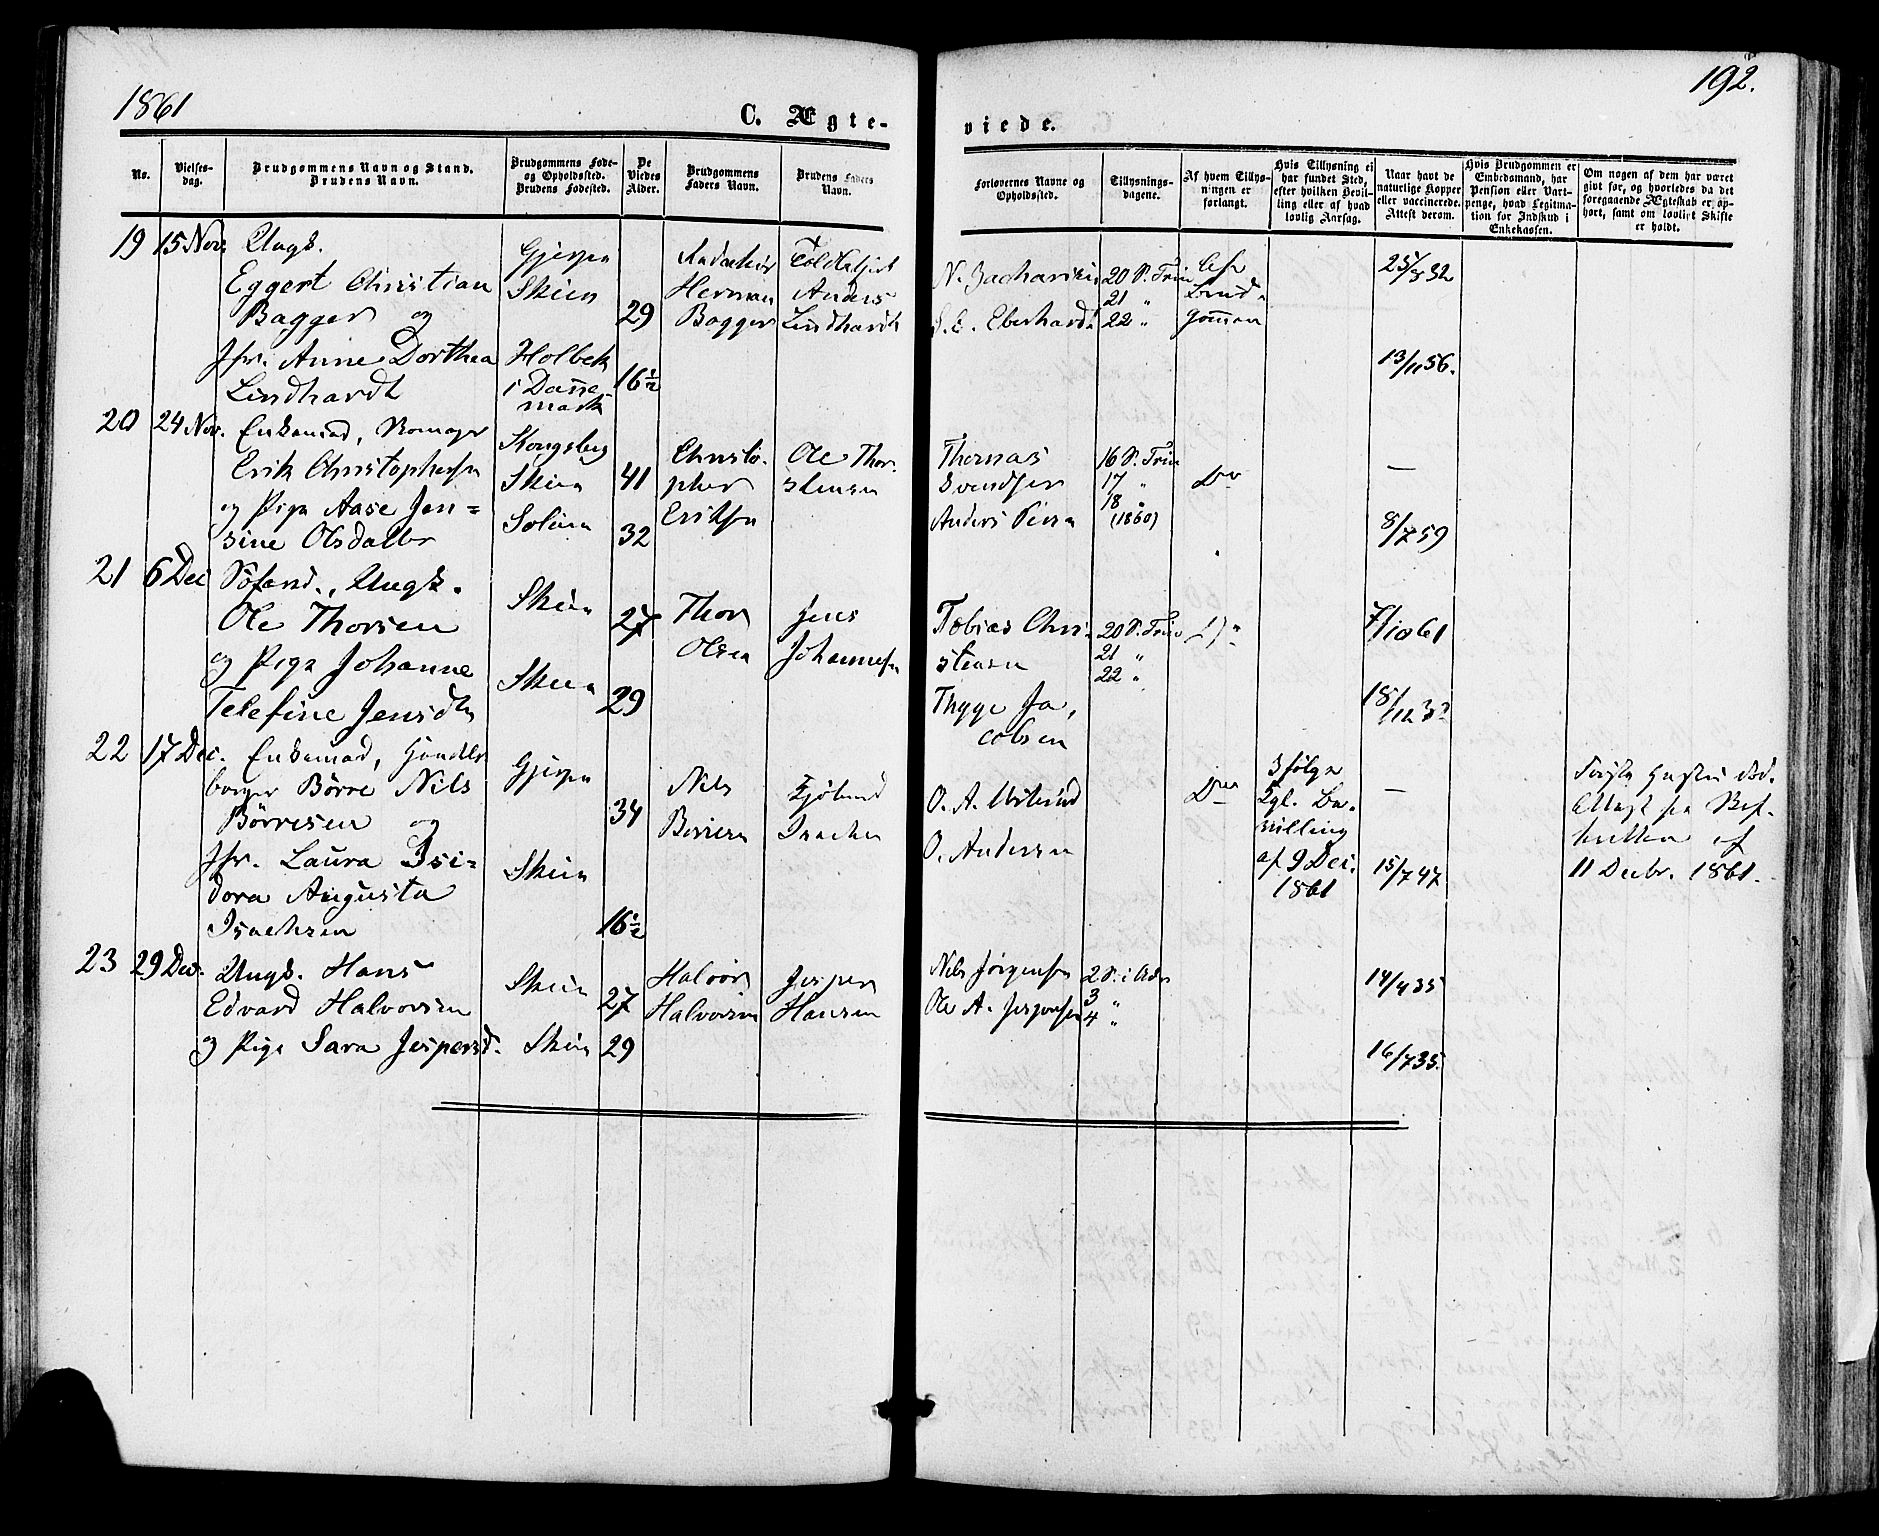 1861
C. Ægte-
viede.
192.
No.
Vielses-
dag.
Brudgommens Navn og Stand.
Brudens Navn.
Brudgommens Føde-
og Opholdssted.
Brudens Fødested.
De
Viedes
Alder.
Brudgommens
Faders Navn.
Brudens Faders
Navn.
Forlovernes Navne og
Opholdssted.
Tillysnings-
dagene.
Af hvem Tillys-
ningen er
forlangt.
Hvis Tillysning ei
har fundet Sted,
efter hvilken Bevil-
ling eller af hvad
lovlig Aarsag.
Naar havt de
naturlige Kopper
eller vaccinerede.
Attest derom.
Hvis Brudgommen er
Embedsmand, har
Pension eller Vart-
penge, hvad Legitima-
tion for Indskud i
Enkekassen.
Om nogen af dem har været
gift før, og hvorledes da det
foregaaende Ægteskab er op-
hørt, samt om lovligt Skifte
er holdt.
19 15 Nov. Ungk.
Eggert Christian
Bagger og
Jfr. Anne Dorthea
Lindhardt
Gjerpen
Skien
Holbek
i Danne-
mark
29
16½
Redaktør
Herman
Bagger
Anders
Lindhardt
N. Zachariesen
S. E. Eberhardt
20 S. Trin
21 "
22 "
Brud-
gommen
25/5 32
13/11 56.
20 24 Nov. Enkemand,
Erik Christophersen
og Pige Aase Jen=
sine Olsdatter
Kongsberg
Skien
Solum
41
32
Christo-
pher
Eriksen
Ole Thor-
stensen
Thomas
Svendsen
Anders
16 S. Trin
17 "
18 "
(1860)
Do
—
8/7 59
21 6 Dec Søfand., Ungk.
Ole Thorsen
og Pige Johanne
Telefine Jensdtr
Skien
Skien
27
29
Thor
Olsen
Jens
Johannesen
Tobias Chri-
stensen
Thyge Ja,
cobsen
20 S. Trin
21 "
22 "
Do
7/10 61
18/12 3?
22 17 Dec. Enkemand, Handels
borger Börre Nils
Börresen og
Jfr. Laura Isi=
dora Augusta
Isachsen
Gjerpen
Skien
34
16½
Nils
Börresen
Isachsen
O. A.
O. Andersen
Do
Ifølge
Kgl. Be-
villing
af 9 Dec.
1861
—
15/7 47
Første Hustru død.
Attest fra
retten af
11 Decbr. 1861.
23 29 Dec. Ungk. Hans
Edvard Halvorsen
og Pige Sara Jespersd.
Skien
Skien
27
29
Halvor
Halvorsen
Jesper
Hansen
Nils Jörgensen
Ole A. Jespersen
2 S. i Adv
3 "
4 "
14/4 35
16/7 35.